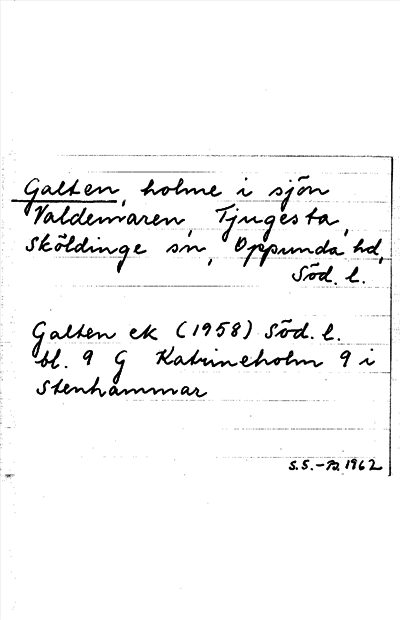 Galten, holme i sjön
Valdemaren, Tjugesta,
Sköldinge sn, Oppunda hd,
Söd. l.
Galten ek (1958) Söd. l.
bl. 9 G Katrineholm 9 i
Stenhammar
S.S. 1962